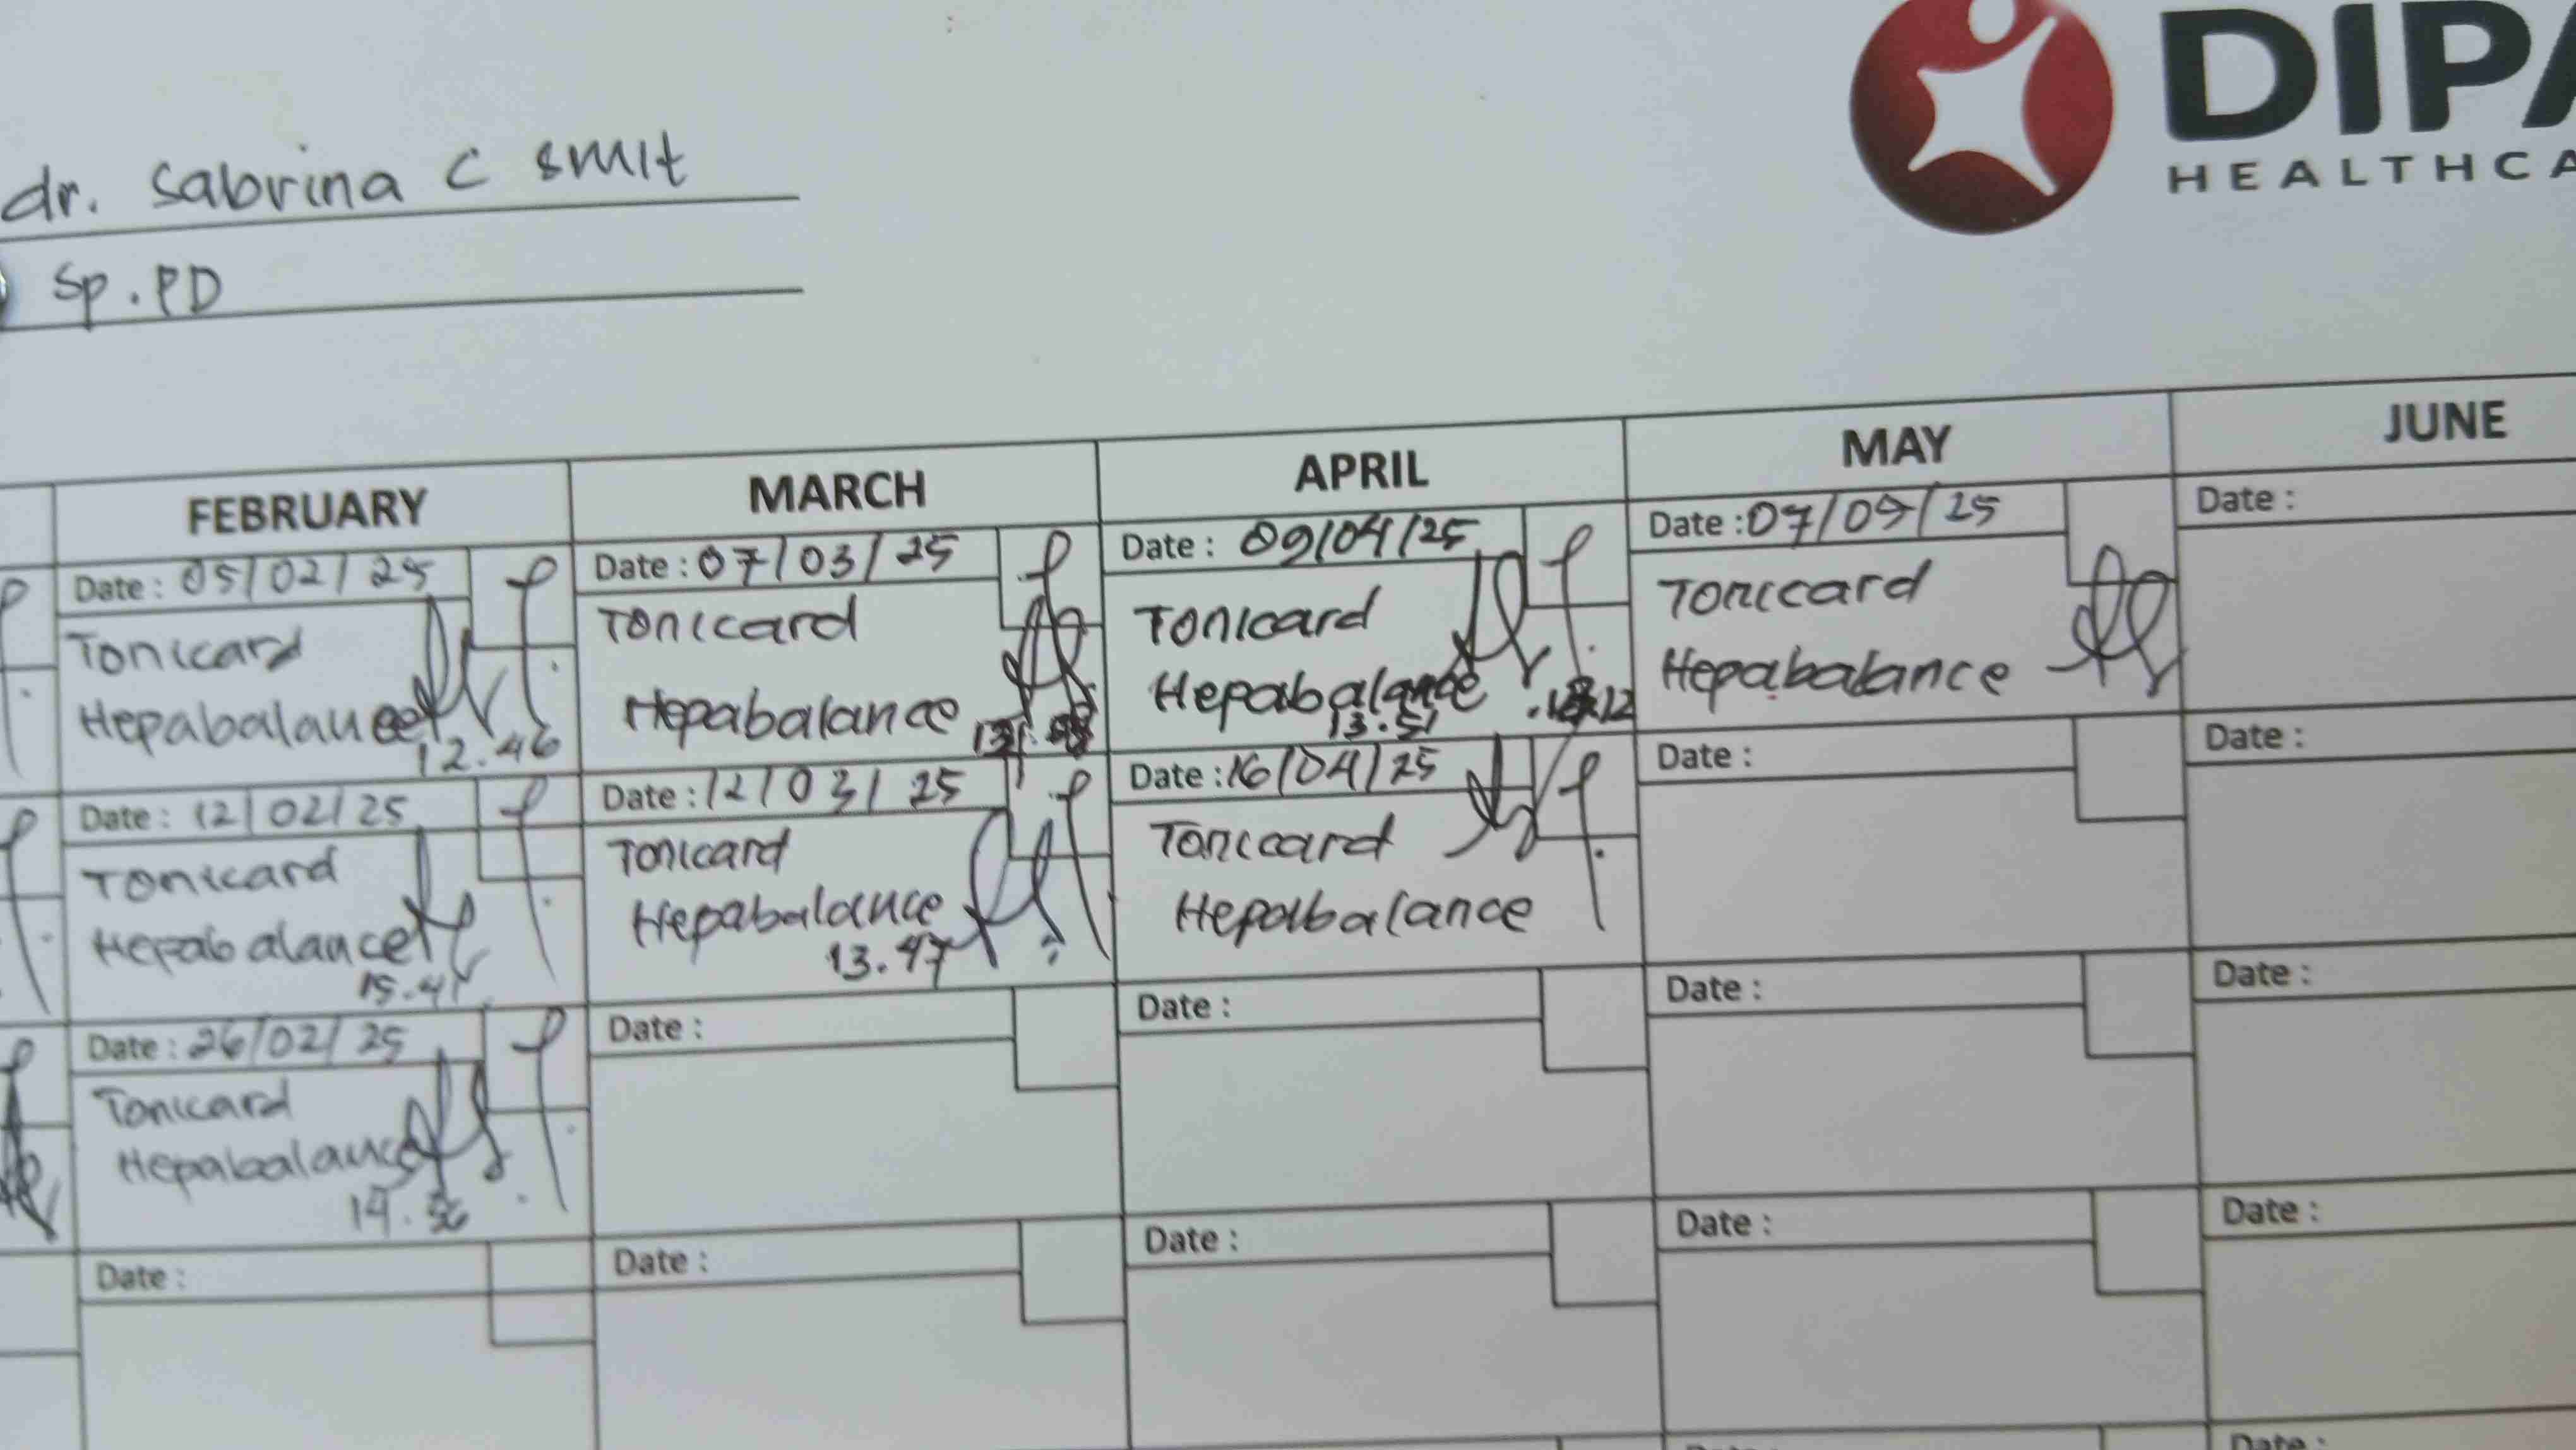 DIPA
HEALTHCA
dr. Sabrina C Smit
Sp.PD
FEBRUARY
MARCH
APRIL
MAY
JUNE
Date : 05/02/25
Tonicard
Hepabalance
12.46
Date : 07/03/25
Tonicard
Hepabalance
Date : 09/04/25
Tonicard
Hepabalance
13.51
Date : 07/05/25
Tonicard
Hepabalance
Date :
Date : 12/02/25
Tonicard
Hepabalance
15.41
Date : 12/03/25
Tonicard
Hepabalance
13.47
Date : 16/04/25
Tonicard
Hepabalance
Date :
Date :
Date : 26/02/25
Tonicard
Hepabalance
14.56
Date :
Date :
Date :
Date :
Date :
Date :
Date :
Date :
Date :
Date :